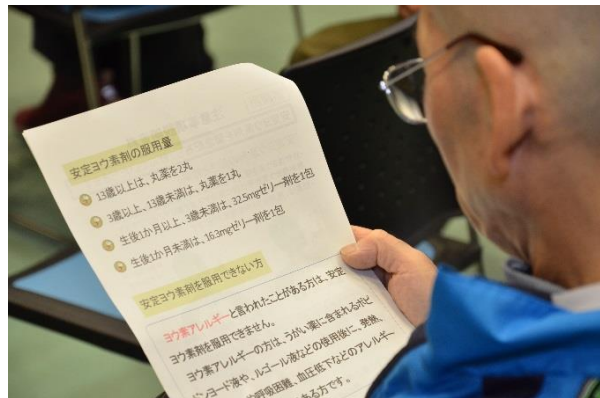 安定ヨウ素剤の服用量
13歳以上は、丸薬を2丸
3歳以上、13歳未満は、丸薬を1丸
生後1か月以上、3歳未満は、32.5mgゼリー剤を1包
生後1か月未満は、16.3mgゼリー剤を1包
安定ヨウ素剤を服用できない方
ヨウ素アレルギーと言われたことがある方は、安定
ヨウ素剤を服用できません。
ヨウ素アレルギーの方は、うがい薬に含まれるポビ
ンヨード液や、ルゴール液などの使用後に、発熱、
呼吸困難、血圧低下などのアレルギー
ある方です。